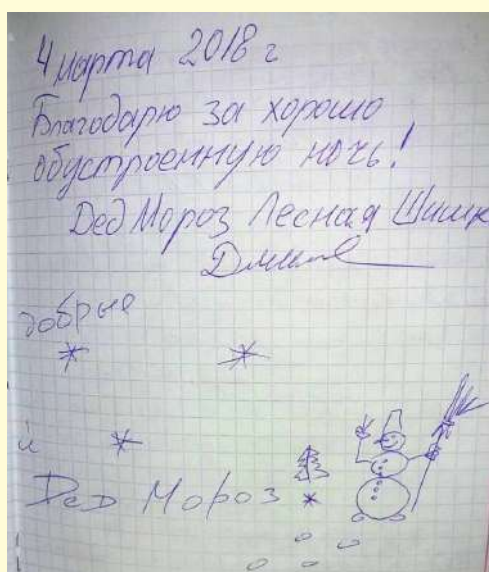 4 марта 2018 г
Благодарю за хорошо
обустроенную ночь!
Дед Мороз Лесная Шишк
добрые
й
Дед Мороз